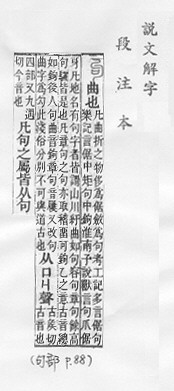 說文解字
段注本
句 曲也
凡曲折之物侈爲倨斂爲句考工記多言倨句
樂記言倨中矩句中鉤淮南子說獸言句爪倨
牙凡地名有句字者皆謂山川紆曲如句容句章句餘高
句驪皆是也凡章句之句亦取稽留可鉤乙之意古音總
如鉤後人句曲音鉤章句音屨又改句
曲字爲勾此淺俗分別不可與道古也
从口丩聲
古音也古矦切
四部又九遇
切今音也
凡句之屬皆从句
(句部 P.88)